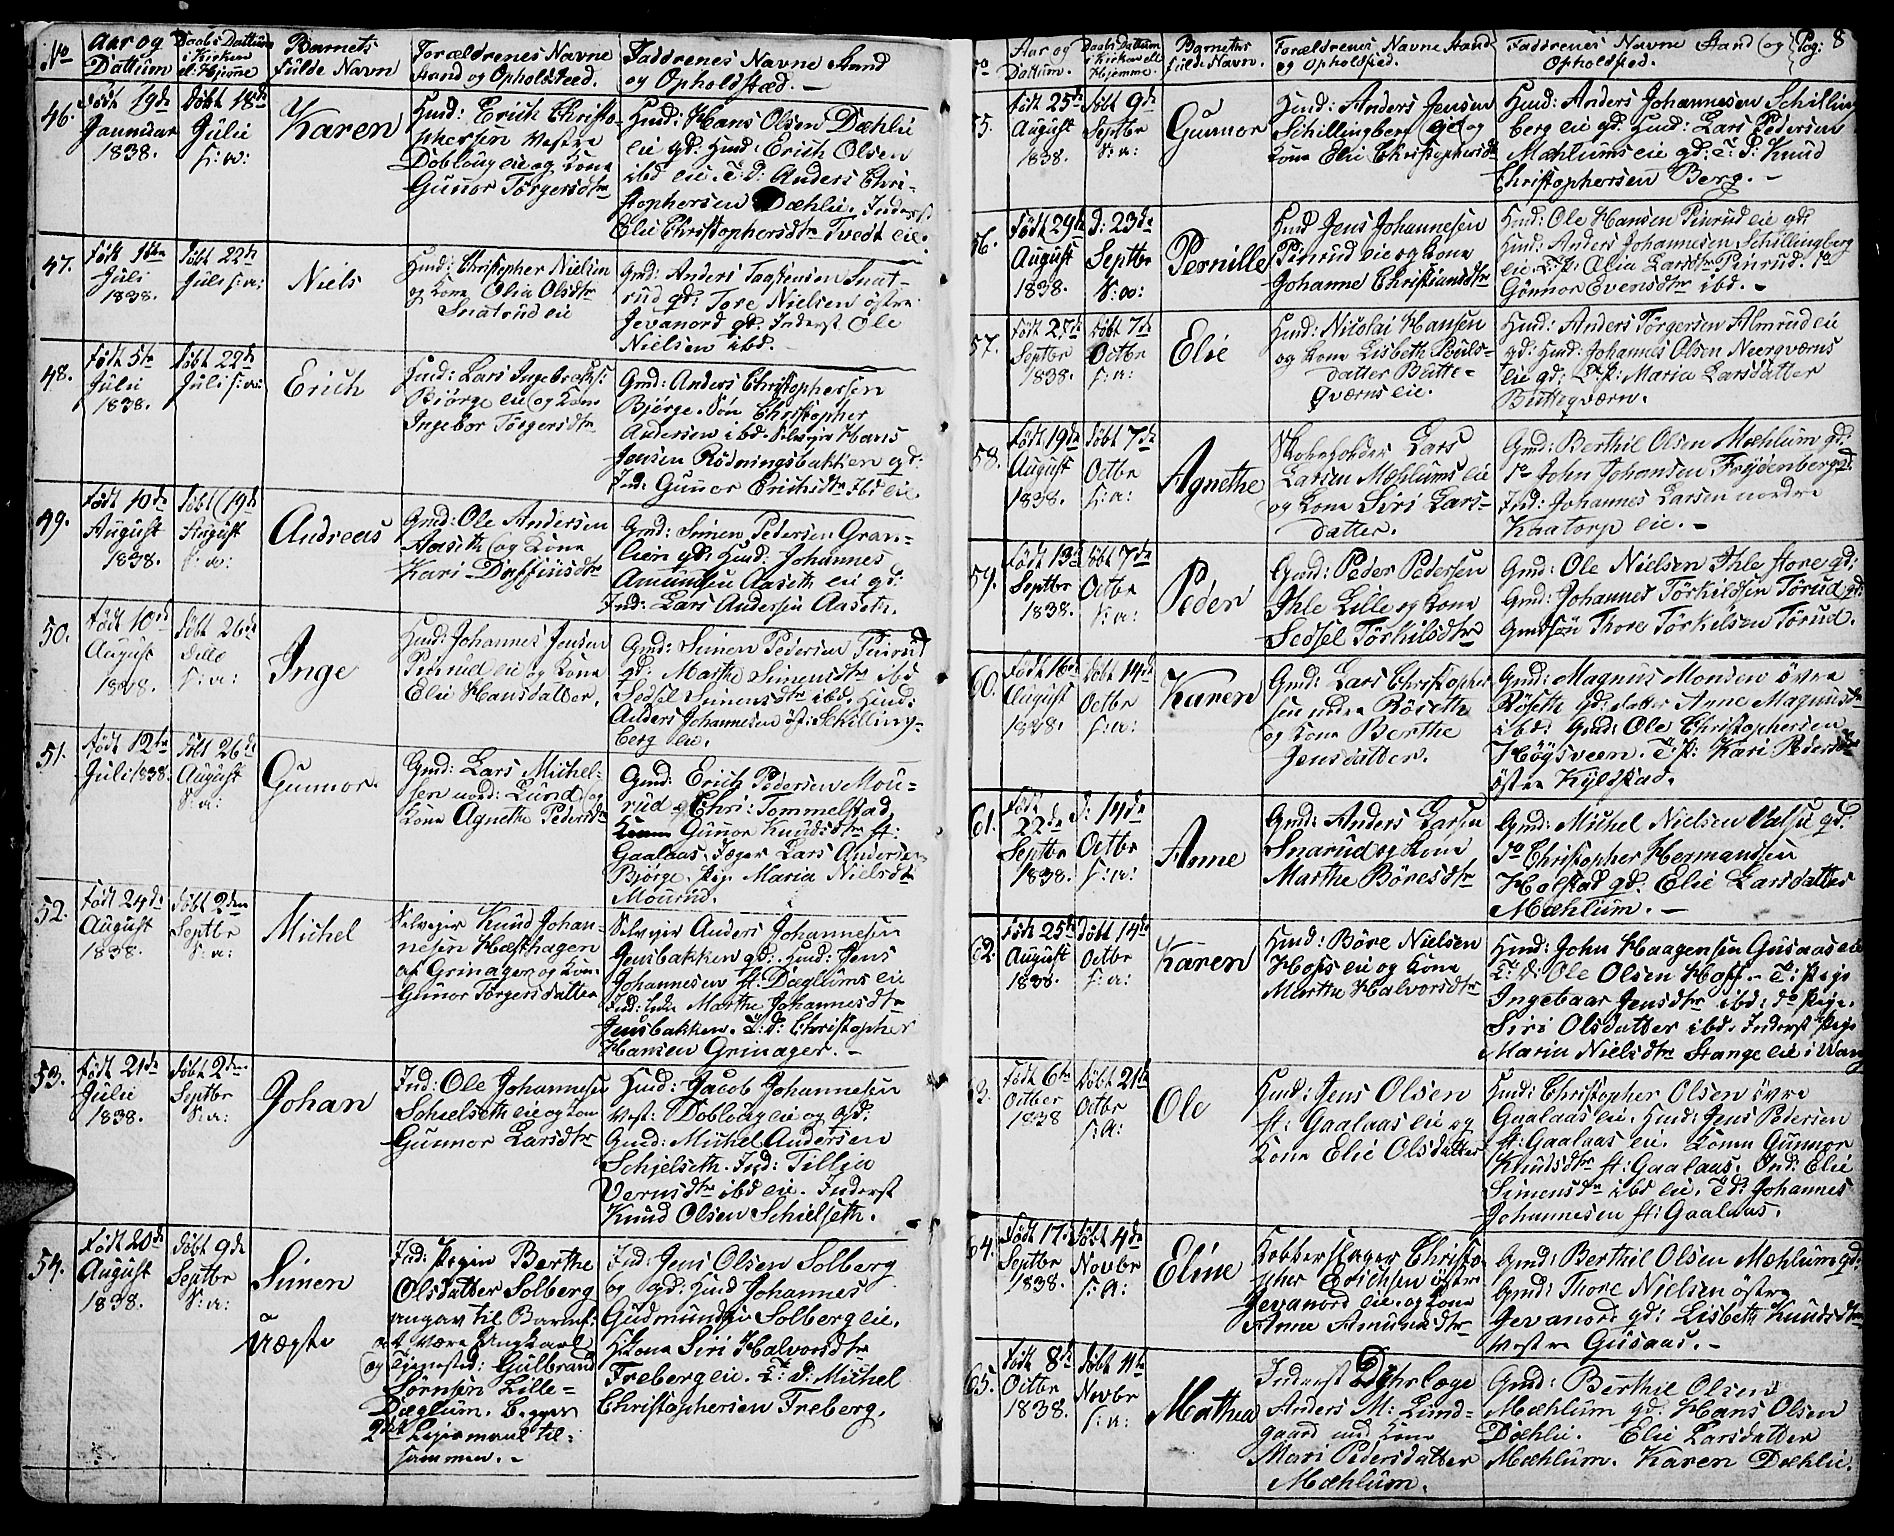 No
Aar og
Dattum
Daabs Dattum
i Kirken
el: Hjeme
Barnets
fulde Navn
Forældrenes Navne
Stand og Opholdsted.
Faddrenes Navne Stand
og Opholdstæd. -
46.
Født 19de
Januuar
1838.
Døbt 18de
Julie
Karen
Huud: Erich Christo-
phersen Vestre
Doblaug eie og Kone
Gunnor Torgersdtr
Huud: Hans Olsen Dæhlie
eie gd: Huud: Erich Olsen
ibd eie. T: d: Anders Chri-
stophersen Dæhlie. Inderst
Elie Christophersdtr Tvedt eie.
47.
Født 1ste
Juli
1838.
Døbt 22de
Juli S: a:
Niels
Huud: Christopher Nielsen
og Kone Olia Olsdtr
Snatrud eie
Gmd: Anders Taastensen Snat-
rud gd: Tore Nielsen østre
Jevanord gd: Inderst Ole
Nielsen ibd. -
48.
Født 5te
Julii
1838.
Døbt 22de
Juli S: a:
Erich
Huud: Lars Ingebrethsen
Biørge eie og Kone
Ingebor Torgersdtr
Gmd: Anders Christophersen
Bjørge. Søn Christopher
Andersen ibd. Selveyer Hans
Jensen Rødningsbakken gd:
Ind: Gunnor Erichsdtr Ibd eie
49.
Født 10de
August
1838.
Døbt 19de
August
S: a:
Andreas
Gmd: Ole Andersen
Aaseth og Kone
Kari Daffinsdtr
Gmd: Simen Pedersen Gran-
lien gd: Huud: Johannes
Amundsen Aaseth eie gd:
Ind: Lars Andersen Aaseth.
50.
Født 10de
August
1838.
Døbt 26de
Ditto
S: a:
Inge
Huud: Johannes Jensen
Pinrud eie og Kone
Elie Hansdatter.
Gmd: Simen Pedersen Pinrud
gd: Marthe Simensdtr ibd
Sedsel Simensdtr ibd. Huud:
Anders Johannesen øst: Schilling-
berg eie.
51.
Født 12te
Juli 1838.
Døbt 26de
August
S: a:
Gunnor.
Gmd: Lars Michel-
sen nord: Lund og
Kone Agnethe Pedersdtr
Gmd: Erich Pedersen Mou-
rud gd: Chri: Tommelstad
Gunnor Knudsdtr st:
Gaalaas. Jæger Lars Andersen
Bjørge. Pige Maria Nielsdtr
Mourud.
52.
Født 24de
August
1838.
Døbt 2den
Septbr
S: a:
Michel
Selveyer Knud Johan-
nesen Hæsthagen
af Grinager og Kone
Gunnor Torgersdatter
Selveyer Anders Johannesen
Jensbakken gd: Huud: Jens
Johannesen st: Daglums eie
Ind: Marthe Johannesdtr
Jensbakken. T: d: Christopher
Hansen Grinager. -
53.
Født 21de
Julie
1838.
Døbt 2den
Septbr
S: a:
Johan
Ind: Ole Johannesen
Schielseth eie og Kone
Gunnor Larsdtr
Huud: Jacob Johannesen
Vest: Doblaug eie og gd:
Gmd: Michel Andersen
Schjelseth. Ind: Tillia
Vernsdtr ibd eie. Inderst
Knud Olsen Schielseth.
54.
Født 20de
August
1838.
Døbt 9de
Septbr
S: a:
Simen
Uægte
Ind: Pigen Berthe
Olsdatter Solberg
angav til Barnef:
at være Ungkarl
og Tjenested: Gulbrand
Sørnsen Lille-
Dæglum. begges
2det Leiermaal til-
sammen. -
Ind: Jens Olsen Solberg
og gd: Huud Johannes
Gudmundsen Solberg eie.
Kone Siri Halvorsdtr
Freberg eie. T: d: Michel
Christophersen Freberg.
Aar og
Dattum.
Daabs Dattum
i Kirken ell
Hjemme.
Barnetes
fulde Navn.
Forældrenes Navne Stand
og Opholdsted.
Faddrenes Navne Stand og
Opholdsted.
Pag: 8
55.
Født 25de
August
1838.
Døbt 9de
Septbr
S: a:
Gunnor
Huud: Anders Jensen
Schillingberg eie og
Kone Elie Christophersdtr
Huud: Anders Johannesen Schilling
berg eie gd: Huud: Lars Pedersen
Mæhlums eie gd: T: d: Knud
Christophersen Berg. -
56.
Født 29de
August
1838.
D: 23de
Septbr
S: a:
Pernille
Huud Jens Johannesen
Pinrud eie og Kone
Johanne Christiansdtr
Huud: Ole Hansen Pinrud eie gd:
Huud: Anders Johannesen Schillingberg
eie. T. P: Olia Larsdtr Pinrud. do
Gønnor Evensdtr ibd. -
57.
Født 27de
Septbr
1838.
Døbt 7de
Octbr
S: a:
Elie
Huud: Nicolai Hansen
og Kone Lisbeth Pouls-
datter Butte-
qværns eie.
Huud: Anders Torgersen Almrud eie
gd: Huud: Johannes Olsen Neerqværns
eie gd: T. P: Maria Larsdatter
Butteqværn.
58.
Født 19de
August
1838.
Døbt 7de
Octbr
S: a:
Agnethe
Skoleholder Lars
Larsen Mæhlums eie
og Kone Siri Lars-
datter.
Gmd: Berthil Olsen Mæhlum gd:
do John Johansen Frøydenberg gd.
Ind: Johannes Larsen nordre
Kaatorp eie. -
59.
Født 13de
Septbr
1838.
Døbt 7de
Octbr
S: a:
Peder
Gmd: Peder Pedersen
Ihle Lille og Kone
Sedsel Torkilsdtr
Gmd: Ole Nielsen Ihle store gd:
Gmd: Johannes Torkildsen Torud gd:
Gmdsøn Thore Torkilsen Torud.
60.
Født 16de
August
1838.
Døbt 14de
Octbr
S: a:
Karen
Gmd: Lars Christopher
sen nedre Røseth
og Kone Berthe
Jensdatter.
Gmd: Magnus Monsen øvre
Røseth gd: datter Anne Magnusdtr
ibd: Gmd: Ole Christophersen
Høgsveen. T. P: Kari Pedersdtr
østre Kylstad.
61.
Født
22de
Septbr
1838.
D: 14de
Octbr
S: a:
Anne
Gmd: Anders Larsen
Snarud og Kone
Marthe Böresdtr
Gmd: Michel Nielsen Valsji gd.
do Christopher Hermandsen
Holstad gd: Elie Larsdatter
Mæhlum. -
62.
Født 25de
August
1838.
Døbt 14de
Octbr
S: a:
Karen
Huud: Böre Nielsen
Hofs eie og Kone
Marthe Halvorsdtr
Huud: John Haagensen Gusaas eie
T: d: Ole Olsen Hoff. - T: Pige
Ingebaar Jensdtr ibd: do Pige.
Siri Olsdatter ibd. Inderst Pige
Maria Nielsdtr Stange eie i Wang
63.
Født 6te
Octber
1838
Døbt 21de
Octbr
S: A:
Ole
Huud: Jens Olsen
st: Gaalaas eie og
Kone Elie Olsdatter
Huud: Christopher Olsen övre
Gaalaas eie. Huud: Jens Pedersen
st: Gaalaas eie. Kone Gunnor
Knudsdtr st: Gaalaas. Ind: Elie
Simensdtr ibd eie. T d: Johannes
Johannesen st: Gaalaas.
64.
Født 17.
Septbr
1838.
Døbt 4de
Novbr
S: A:
Eline
Kobberslager Christo
pher Erichsen østre
Jevanord eie. og Kone
Anne Amundsdtr
Gmd: Berthil Olsen Mæhlum gd:
Gmd: Thore Nielsen østre
Jevanord gd: Lisbeth Knudsdtr
Vestre Gusaas. -
65.
Født 8de
Octbr
1838.
Døbt 11te
Novbr
S: a:
Mathea
Inderst Dyhrlæge
Anders M: Lund-
gaard med Kone
Mari Pedersdatter
Mæhlum.
Gmd: Berthil Olsen
Mæhlum gd: Hans Olsen
Dæhlie. Elie Larsdatter
Mæhlum. Karen Dæhlie.